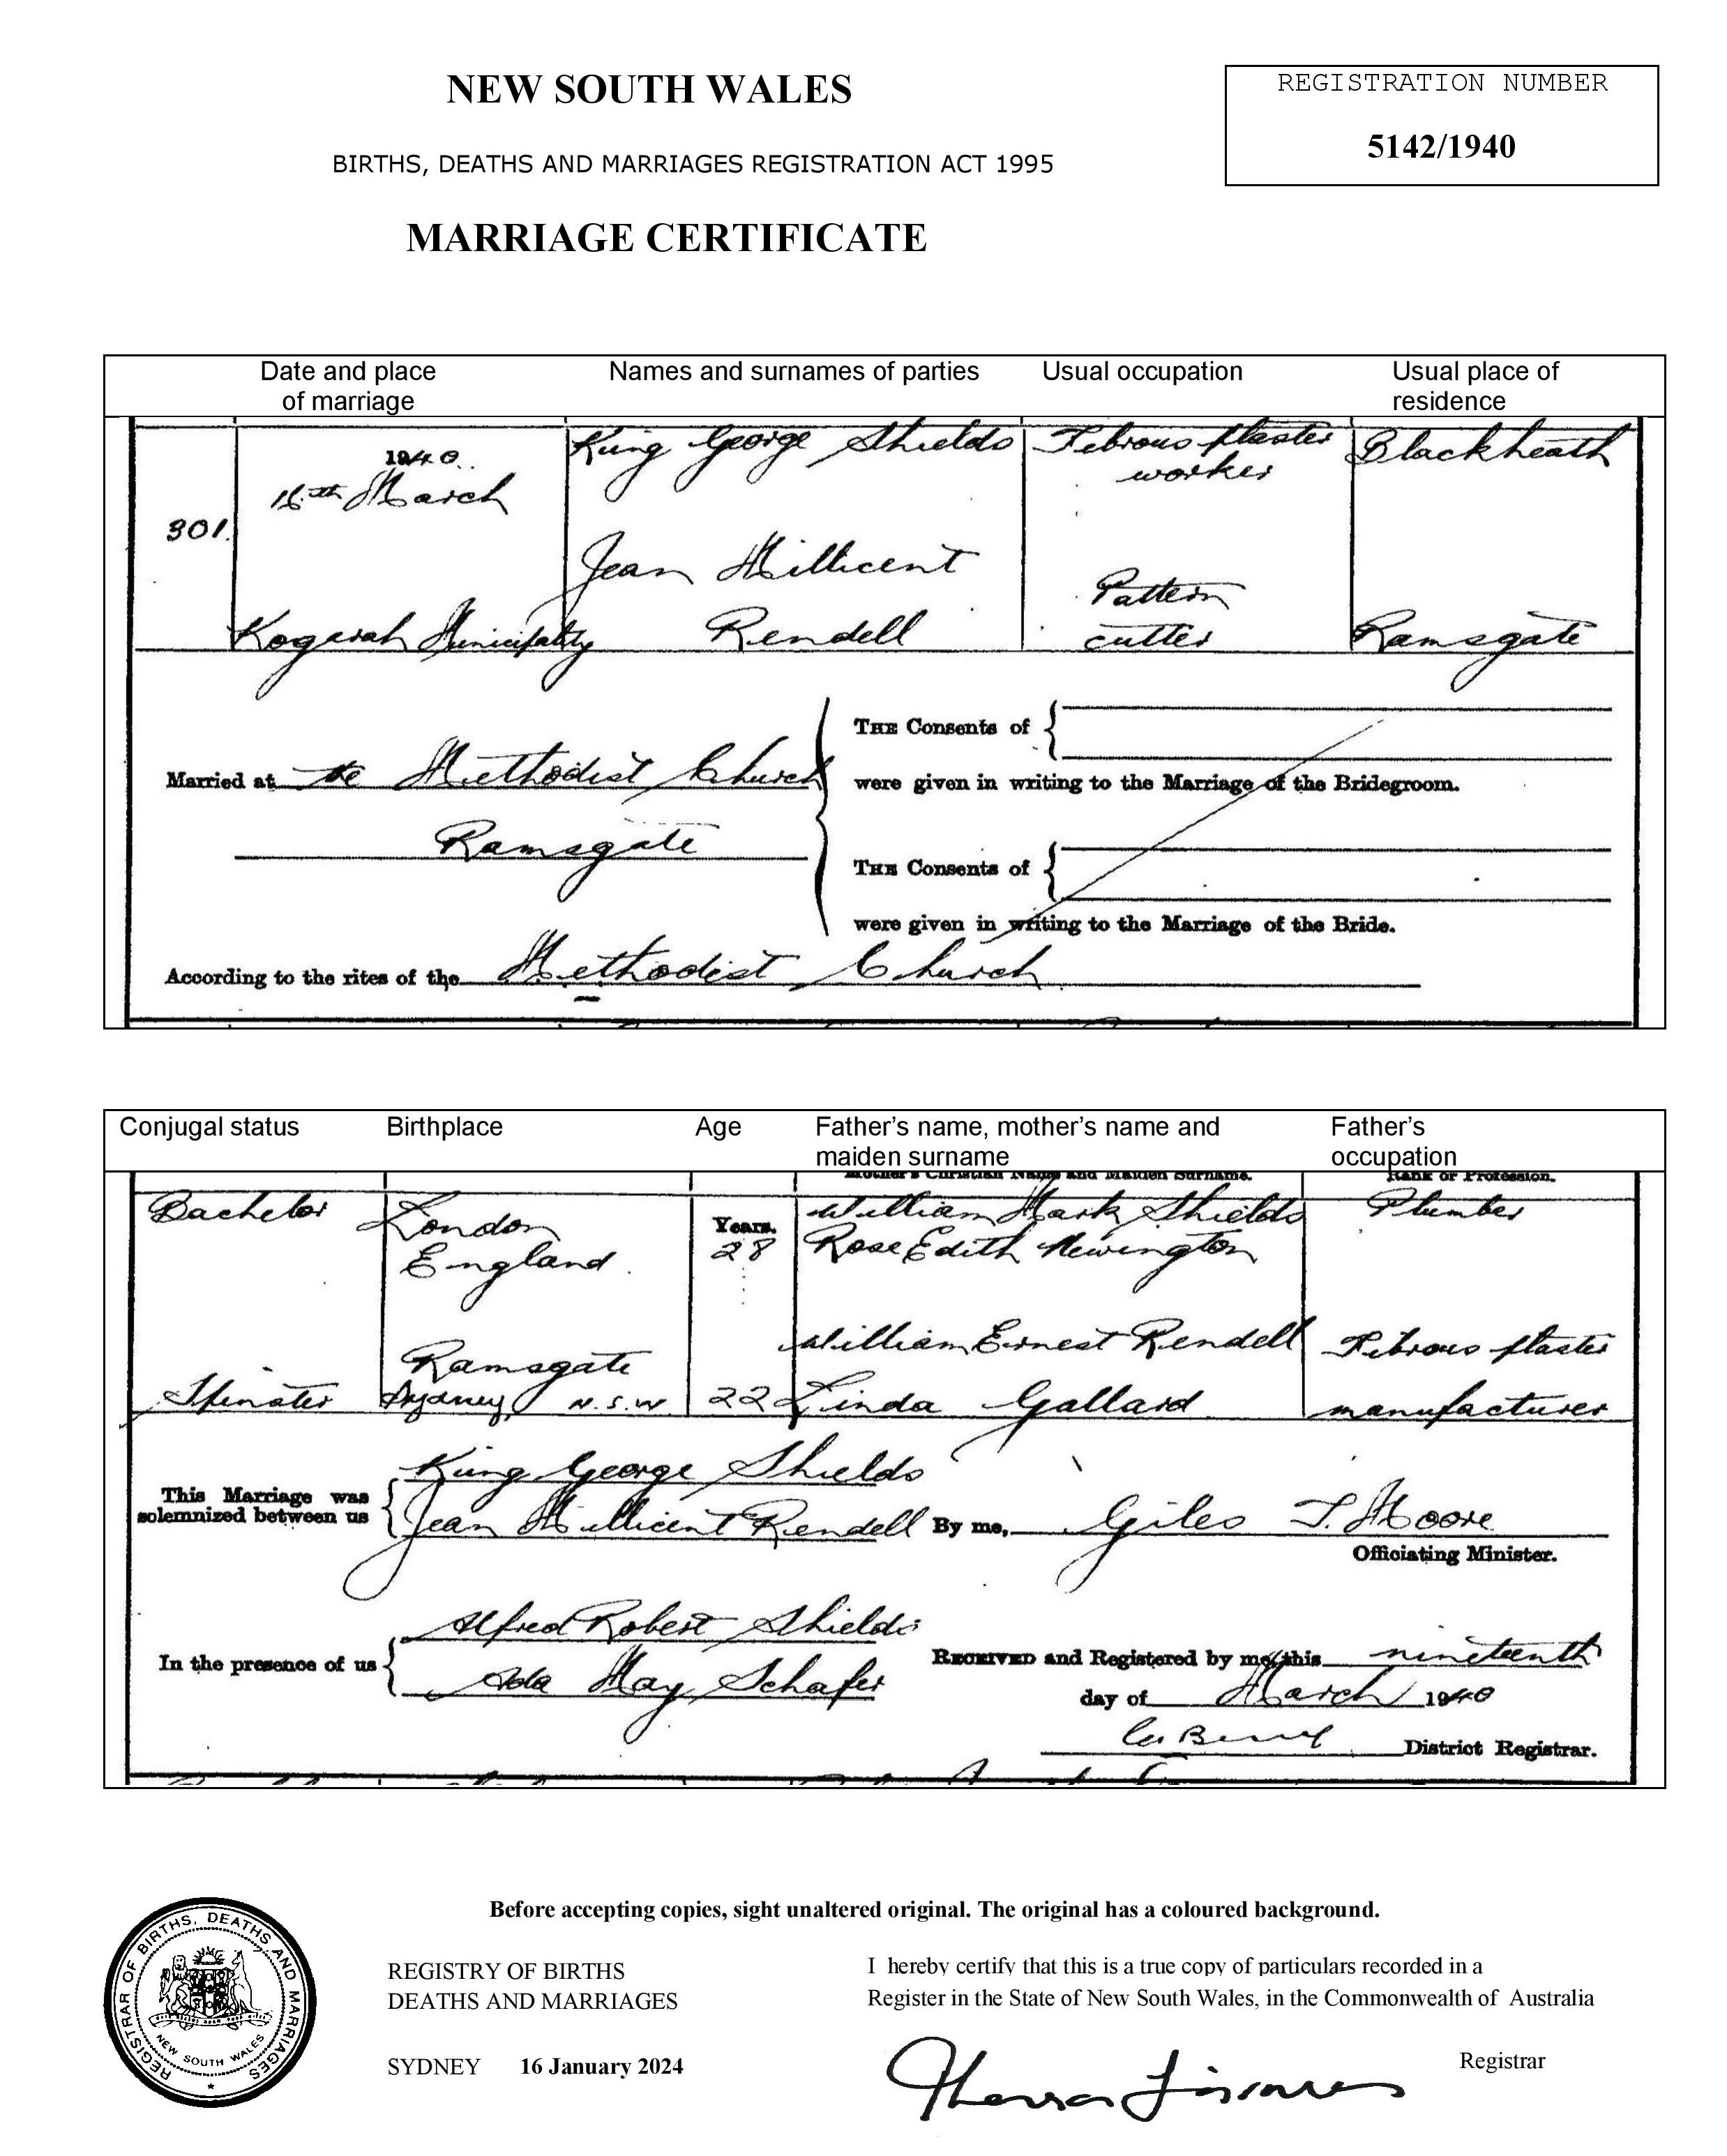 NEW SOUTH WALES
REGISTRATION NUMBER
5142/1940
BIRTHS, DEATHS AND MARRIAGES REGISTRATION ACT 1995
MARRIAGE CERTIFICATE
Date and place of marriage
Names and surnames of parties
Usual occupation
Usual place of residence
301.
1940.
March
Kogarah Municipality
King George Shields
Fibrous plaster
worker
Blackheath
Jean Millicent
Rendell
Pattern
cutter
Ramsgate
Married at the Methodist Church
Ramsgate
THE Consents of
were given in writing to the Marriage of the Bridegroom.
THE Consents of
were given in writing to the Marriage of the Bride.
According to the rites of the Methodist Church
Conjugal status
Birthplace
Age
Father's name, mother's name and maiden surname
Father's occupation
Mother's Christian Name and Maiden Surname.
Rank or Profession.
Bachelor
London
England
Years.
28
William Mark Shields
Rose Edith Newington
Plumber
Spinster
Ramsgate
Sydney N.S.W.
22
William Ernest Rendell
Linda Gallard
Fibrous plaster
manufacturer
This Marriage was
solemnized between us
King George Shields
Jean Millicent Rendell
By me, Giles T. Moore
Officiating Minister.
In the presence of us
Alfred Robert Shields
Ada May Schafer
RECEIVED and Registered by me, this nineteenth
day of March 1940
District Registrar.
Before accepting copies, sight unaltered original. The original has a coloured background.
REGISTRAR OF BIRTHS, DEATHS AND MARRIAGES
NEW SOUTH WALES
REGISTRY OF BIRTHS
DEATHS AND MARRIAGES
SYDNEY 16 January 2024
I hereby certify that this is a true copy of particulars recorded in a
Register in the State of New South Wales, in the Commonwealth of Australia
Registrar